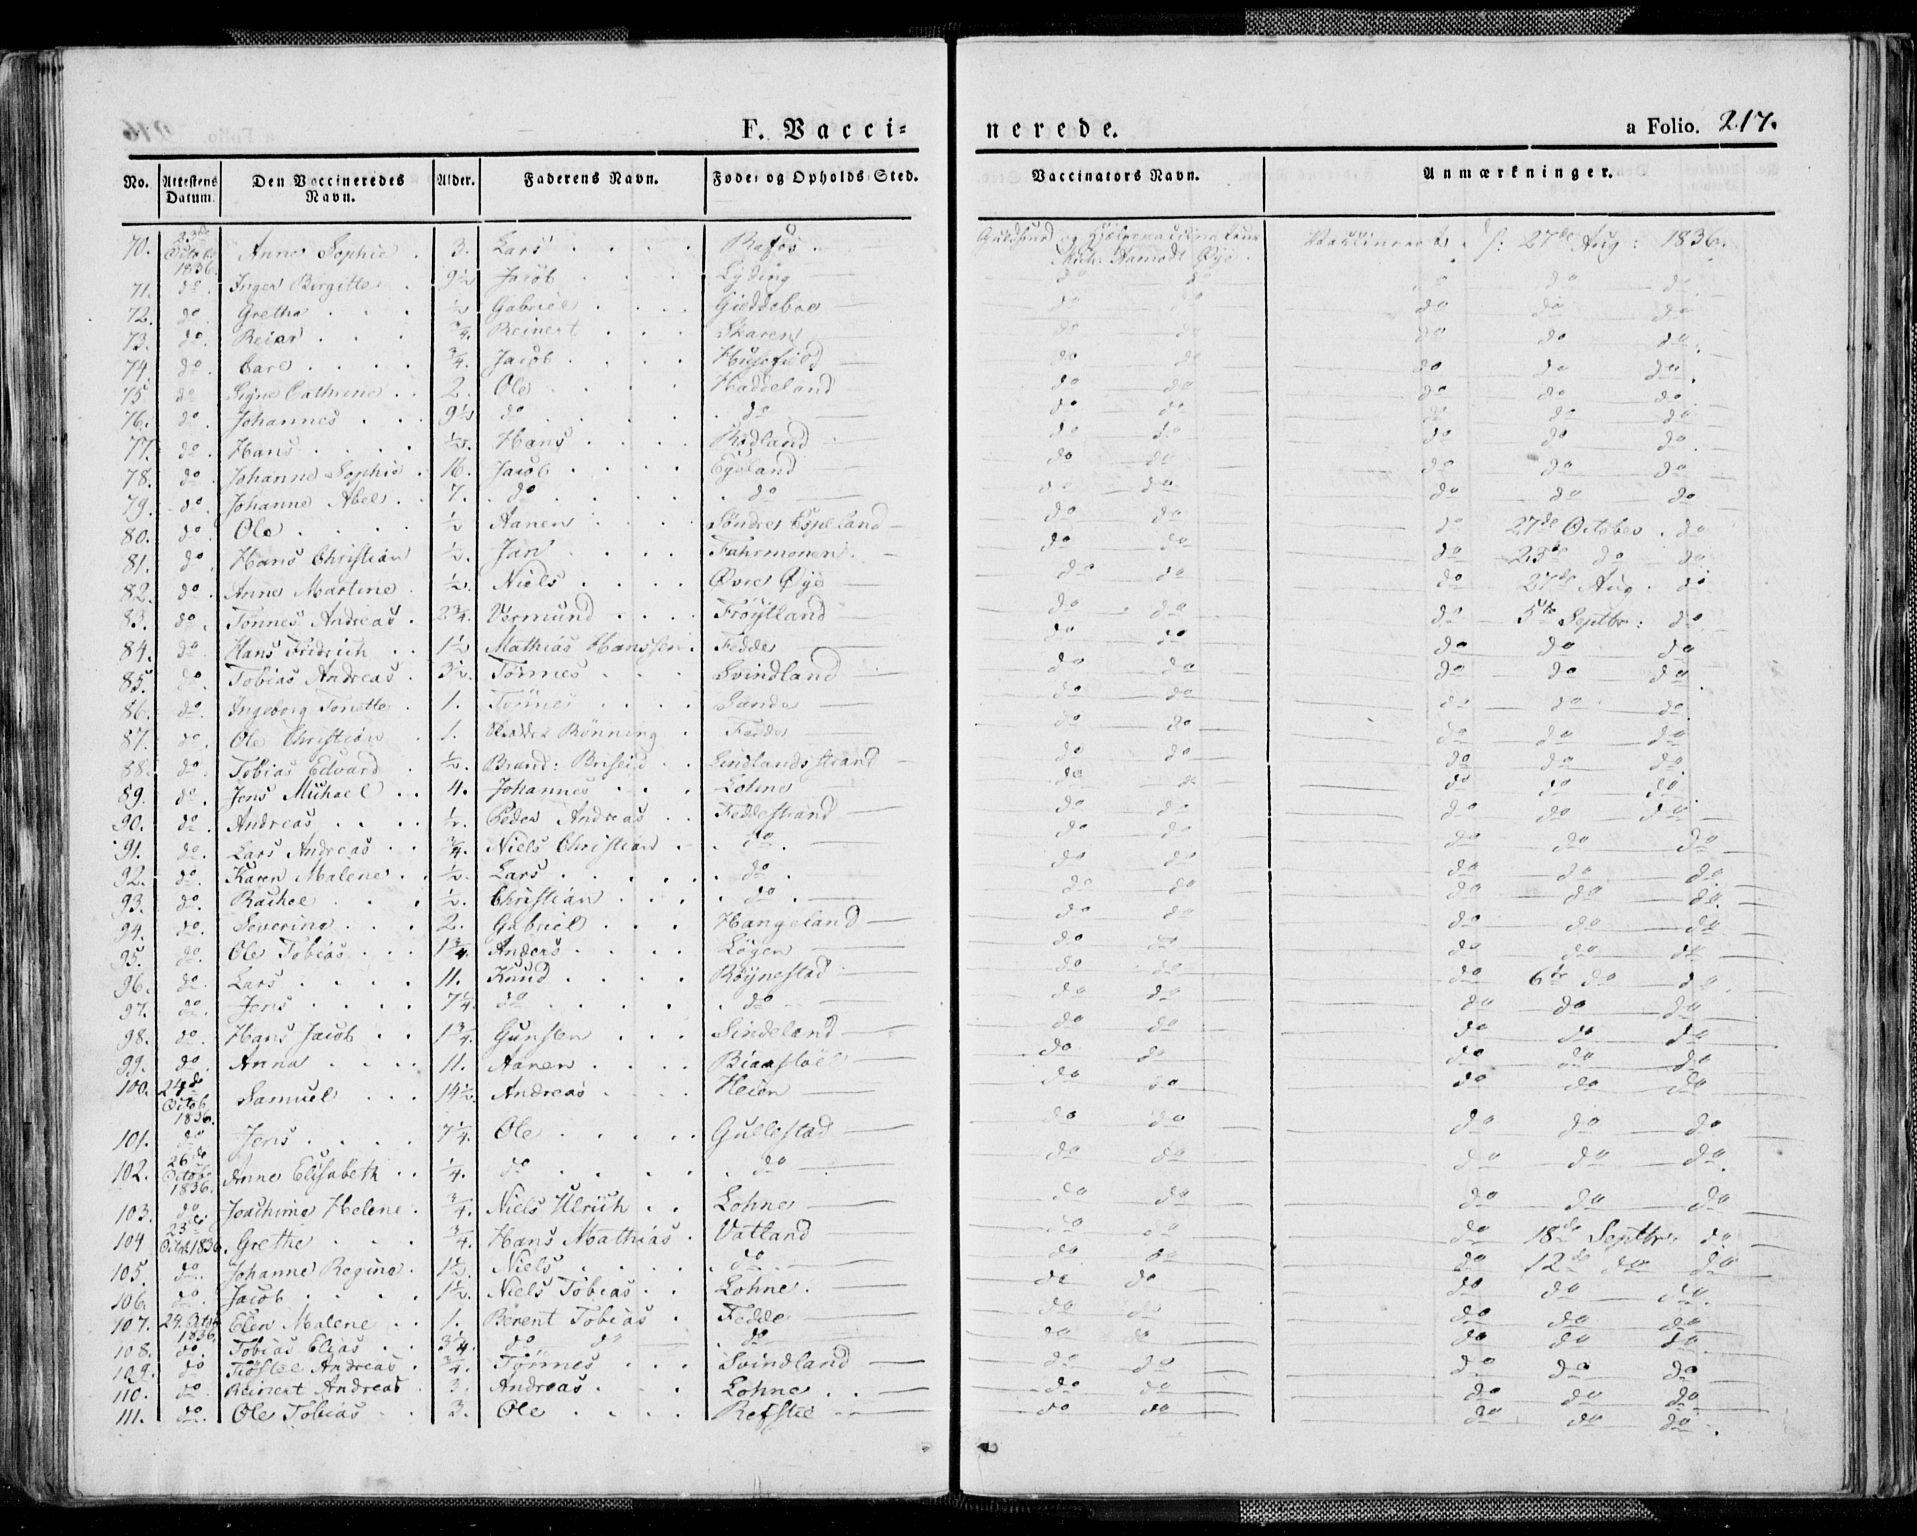 F. Vacci=
nerede.
a Folio. 217.
No. Attestens Datum. Den Vaccineredes Navn. Alder. Faderens Navn. Føde- og Opholds Sted. Vaccinators Navn. Anmærkninger.
70. 23de Octob 1836 Anne Sophie 3. Lars 27de Aug: 1836.
71. do. Inger Birgitte 9½ Jacob Lyding do do do do do
72. do. Grethe ½ Gabriel Gieddeboe do do do do do
73. do. Reier ¾. Reinert Skaren do do do do do
74. do. Carl ¾. Jacob do do do do do
75 do Signe Cathrine 2. Ole Haddeland do do do do do
76. do. Johannes 9½ do do do do do do do
77. do. Hans ½. Hans Rødland do do do do do
78. do. Johanne Sophie 16. Jacob Egeland do do do do do
79. do. Johanne Abel 7. do do do do do do do
80. do. Ole ½ Aanen Søndre Espeland do do do 27de October. do
81. do Hans Christian ½. Jan Fuhrmonen. do do do 23de do do
82. do. Anne Martine ½. Niels Øvre Øye do do do 27de Aug. do
83. do. Tønnes Andreas 2¾. Vermund Frøytland do do do 5te Septbr: do
84. do. Hans Fridrich 1½ Mathias Hanssen Fedde do do do do do
85. do. Tobias Andreas 3½. Tønnes Svindland do do do do do
86. do. Ingeborg Tonette 1. Tønnes Sande do do do do do
87. do. Ole Christian 1. Rønning Fedde do do do do do
88. do. Tobias Edvard ½. Brand: Briseid Lindlands strand do do do do do
89. do. Jens Michael 4. Johannes Lohne do do do do do
90. do. Andreas ½. Peder Andreas Feddestrand do do do do do
91. do. Lars Andreas ¾. Niels Christian do. do do do do do
92. do. Karen Malene ½. Lars do. do do do do do
93. do. Rachel ½. Christian do. do do do do do
94. do. Severine 2. Gabriel Hangeland do do do do do
95. do. Ole Tobias 1¾. Anders Løgen do do do do do
96. do. Lars 11. Knud Røynestad do do do 6te do do
97. do. Jens 7¼ do do do do do do do
98. do. Hans Jacob 1¾. Gunsten Sindeland do do do do do
99. do. Anna 11. Aanen do do do do do
100. 24de Octob 1836. Samuel 14½. Andreas Heien do do do do do
101. do Jens 7¼. Ole Gullestad do do do do do
102. 26de Octob 1836. Anne Elisabeth ¼. do do do do do do do
103. do Joachime Helene ¾. Niels Ulrich Lohne do do do do do
104 23de Octob 1836. Grethe ¾. Hans Mathias Vatland do do do 18de Septbr. do
105. do. Johanne Regine 1½. Niels do do do do 12de do do
106. do. Jacob 1½. Niels Tobias Lohne. do do do do do
107. 24. Octob 1836. Elen Malene 1. Berent Tobias Fedde do do do do do
108. do. Tobias Elias 3¼ do do do do do do do do
109. do Andreas ¾. Tønnes Svindland do do do do do
110. do Reinert Andreas 3. Andreas Lohne do do do do do
111. do. Ole Tobias 3. Ole Refstie do do do do do